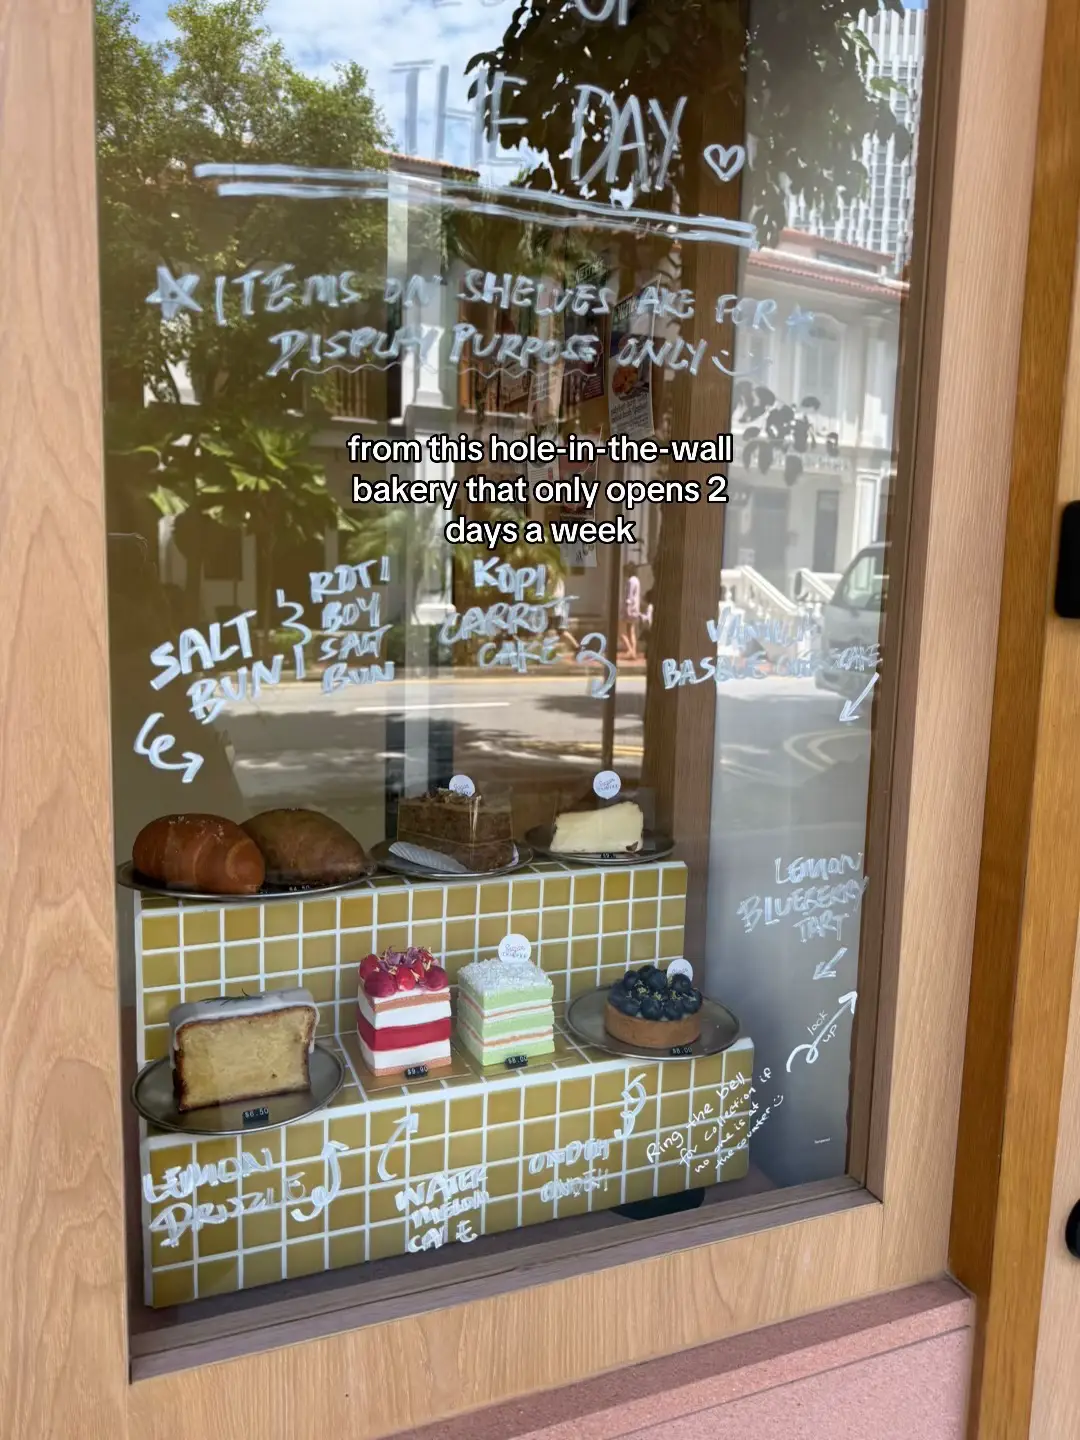 OF
THE DAY ♡
☆ ITEMS ON SHELVES ARE FOR ☆
DISPLAY PURPOSE ONLY
from this hole-in-the-wall
bakery that only opens 2
days a week
SALT
BUN
ROTI
BOY
SALT
BUN
KOPI
CARROT
CAKE
VANILLA
BASQUE CHEESECAKE
LEMON
BLUEBERRY
TART
look
up
$9.90
$8.00
$6.50
Ring the bell
for collection if
no one is at
the counter :)
LEMON
DRIZZLE
WATER
MELON
CAKE
ONDEH
ONDEH